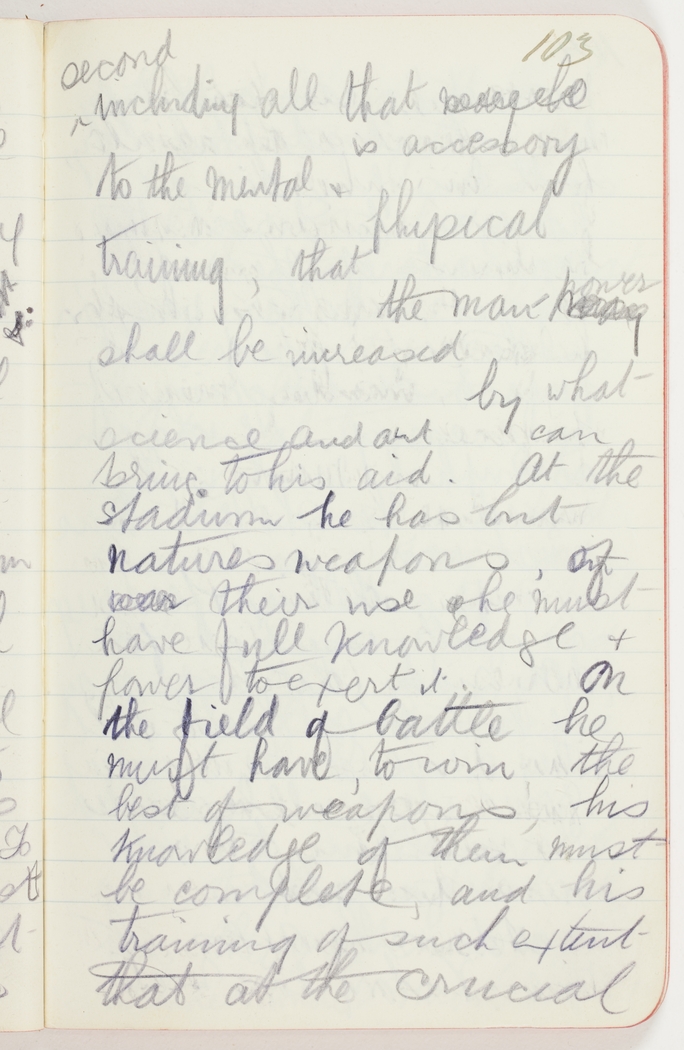 103
second
including all that
is accessory
to the mental & physical
training, that
the man power
shall be increased
by what
science and art can
bring to his aid. At the
stadium he has but
natures weapons, of
their use he must
have full knowledge +
power to exert it. On
the field of battle he
must have, to win the
best of weapons, his
knowledge of them must
be complete, and his
training of such extent
that at the crucial